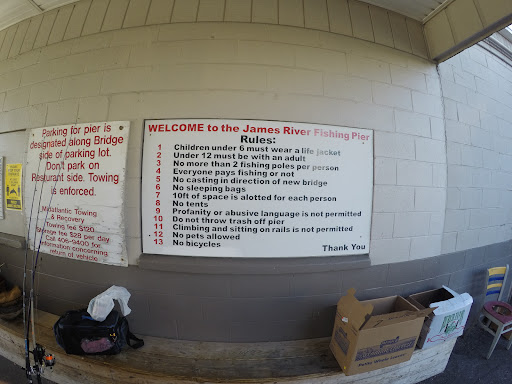 Parking for pier is
designated along Bridge
side of parking lot.
Don't park on
Resturant side. Towing
is enforced.
Midatlantic Towing
& Recovery
Towing fee $120
Storage fee $28 per day
Call 406-9400 for
information concerning
return of vehicle.
WELCOME to the James River Fishing Pier
Rules:
1 Children under 6 must wear a life jacket
2 Under 12 must be with an adult
3 No more than 2 fishing poles per person
4 Everyone pays fishing or not
5 No casting in direction of new bridge
6 No sleeping bags
7 10ft of space is alotted for each person
8 No tents
9 Profanity or abusive language is not permitted
10 Do not throw trash off pier
11 Climbing and sitting on rails is not permitted
12 No pets allowed
13 No bicycles
Thank You